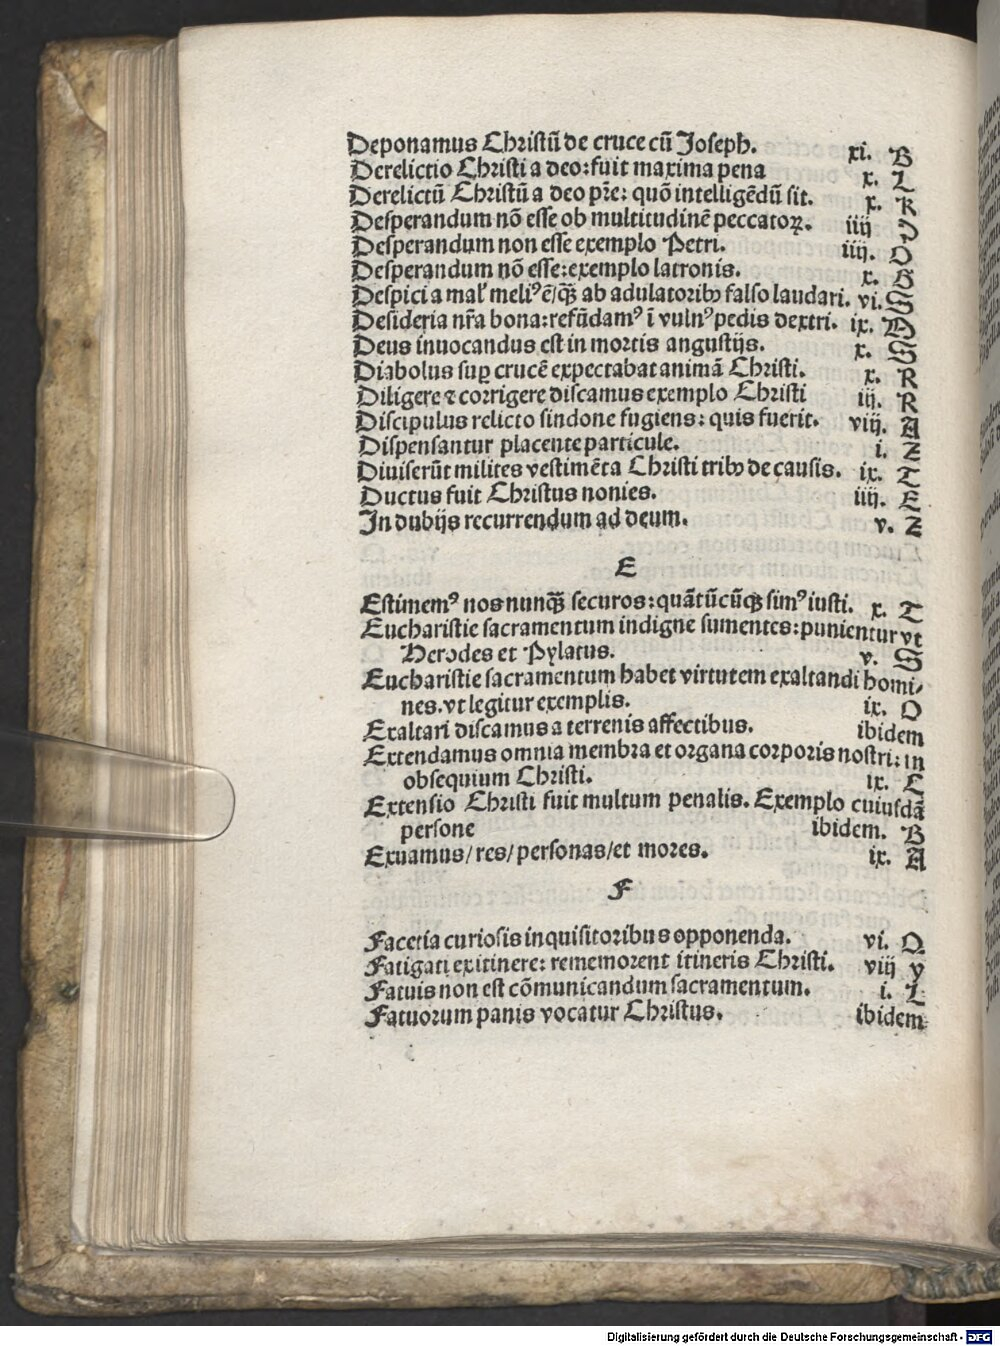 Deponamus Christū de cruce cū Joseph. xi. B
Derelictio Christi a deo: fuit maxima pena x. L
Derelictū Christū a deo pr̄e: quō intelligēdū sit. x. K
Desperandum nō esse ob multitudinē peccatoꝝ. iiij D
Desperandum non esse exemplo Petri. iiij. O
Desperandum nō esse: exemplo latronis. x. B
Despici a mal' meliꝰ ē/qȝ̄ ab adulatoribꝰ falso laudari. vi. S
Desideria nr̄a bona: refūdamꝰ ī vulnꝰ pedis dextri. ix.
Deus inuocandus est in mortis angustijs. x. S
Diabolus suꝑ crucē expectabat animā Christi. x. R
Diligere ⁊ corrigere discamus exemplo Christi iij. R
Discipulus relicto sindone fugiens: quis fuerit. viij. A
Dispensantur placente particule. i. Z
Diuiserūt milites vestimēta Christi tribꝰ de causis. ix. T
Ductus fuit Christus nonies. iiij. E
In dubijs recurrendum ad deum. v. Z
E
Estimemꝰ nos nunqȝ̄ securos: quātūcūqȝ simꝰ iusti. x. T
Eucharistie sacramentum indigne sumentes: punientur vt
Herodes et Pylatus. v. S
Eucharistie sacramentum habet virtutem exaltandi homi/
nes. vt legitur exemplis. ix. O
Exaltari discamus a terrenis affectibus. ibidem
Extendamus omnia membra et organa corporis nostri: in
obsequium Christi. ix. C
Extensio Christi fuit multum penalis. Exemplo cuiusdā
persone ibidem. B
Exuamus/ res/ personas/ et mores. ix. A
F
Facetia curiosis inquisitoribus opponenda. vi. Q
Fatigati ex itinere: rememorent itineris Christi. viij y
Fatuis non est cōmunicandum sacramentum. i. L
Fatuorum panis vocatur Christus. ibidem
Digitalisierung gefördert durch die Deutsche Forschungsgemeinschaft - DFG